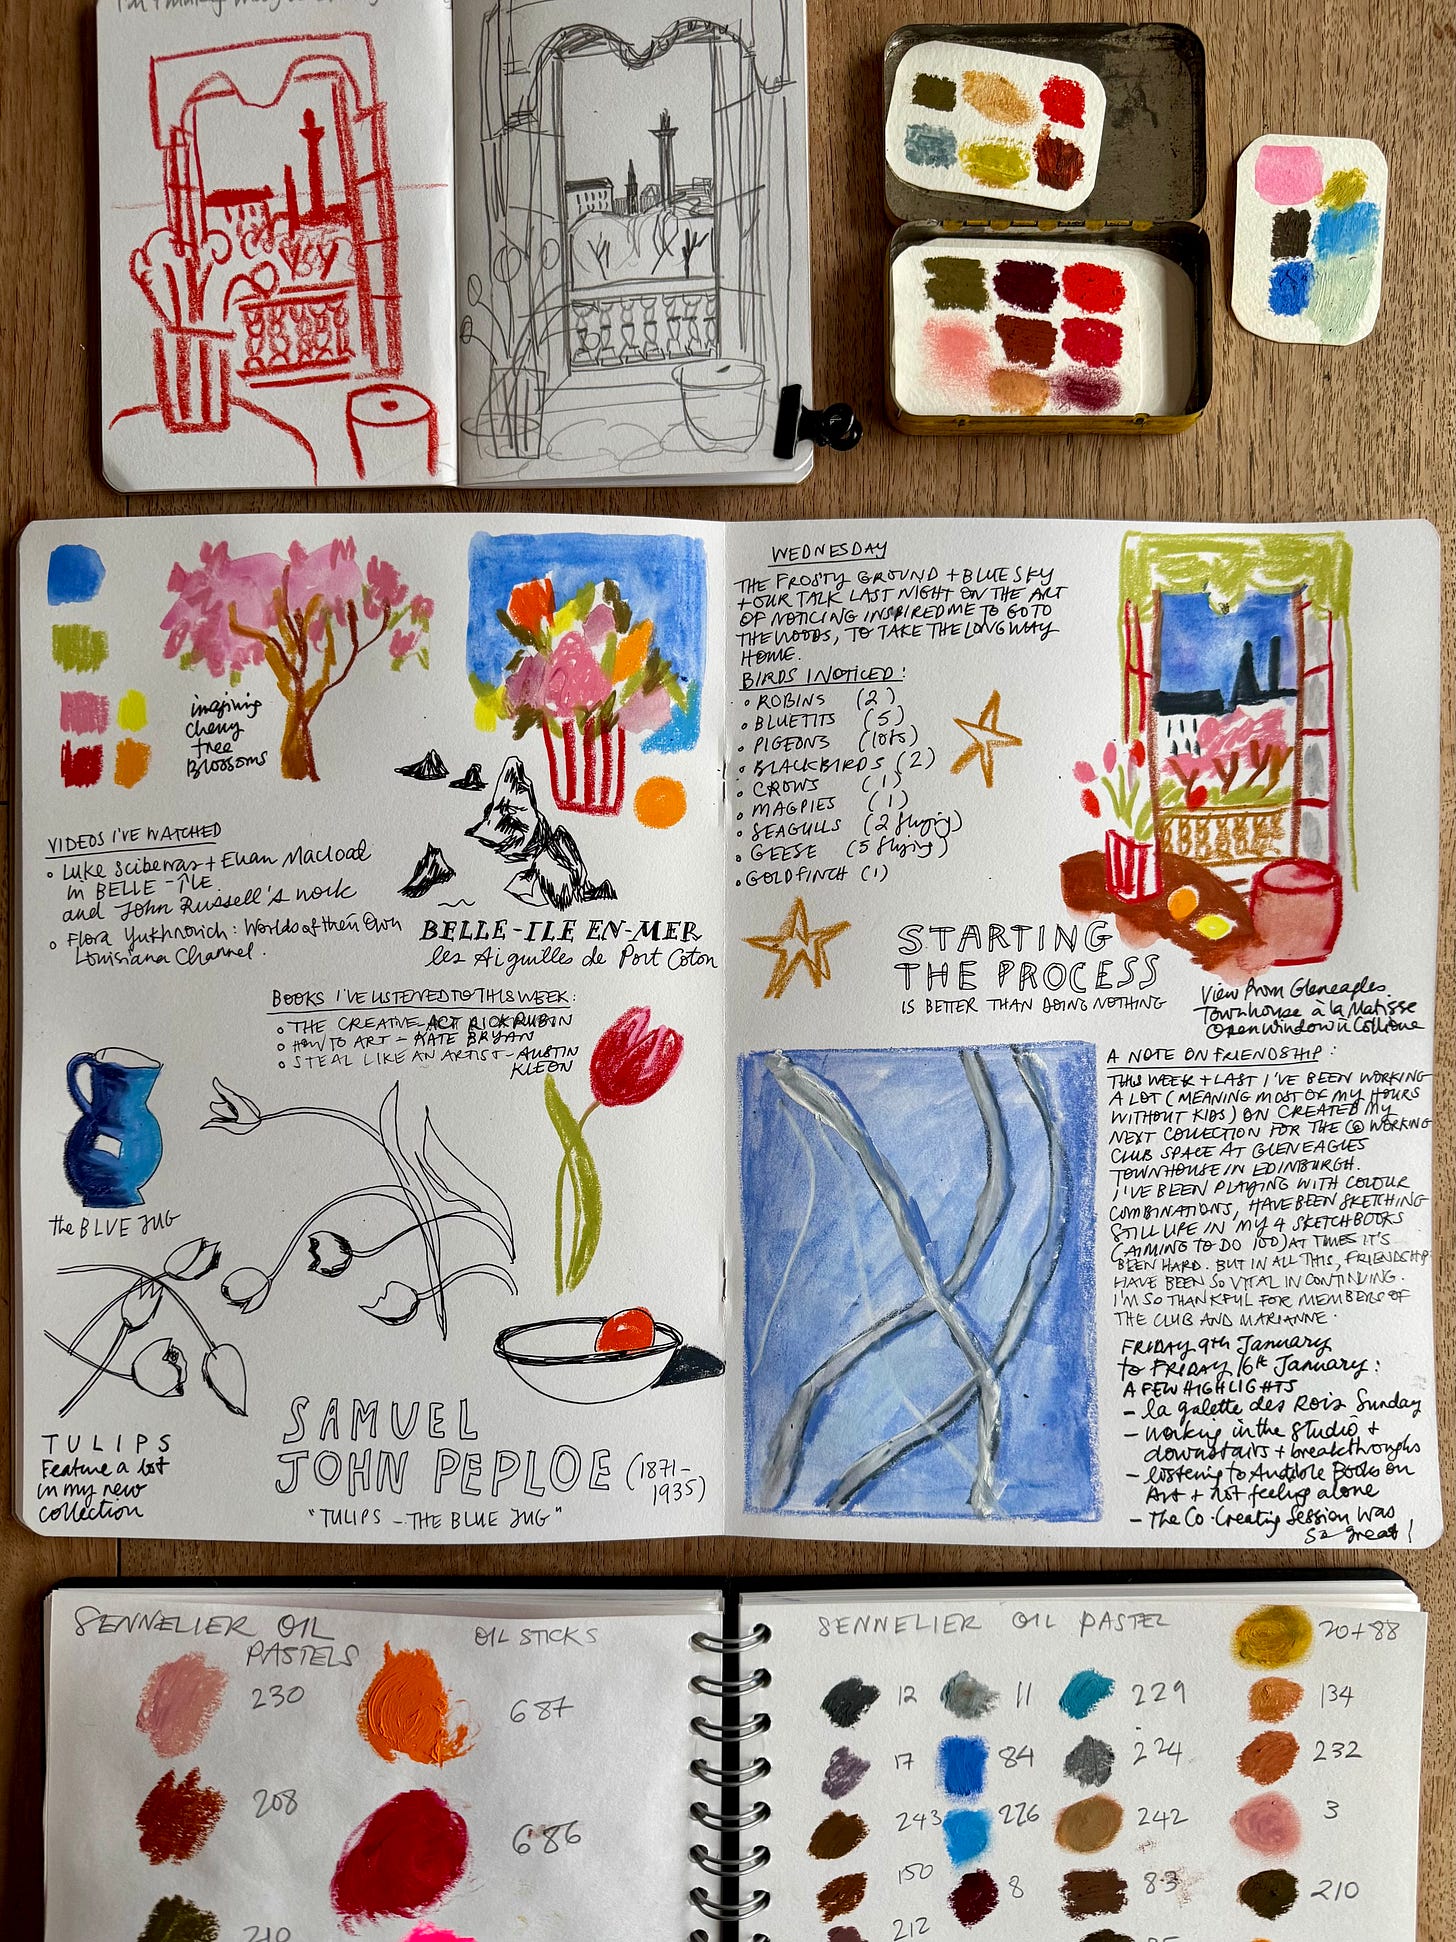 imagining
cherry
tree
Blossoms
VIDEOS I'VE WATCHED
• Luke Sciberras + Euan Macload
in BELLE-ÎLE
and John Russell's work
• Flora Yukhnovich: Worlds of their Own
Louisiana Channel.
BELLE-ILE EN-MER
les Aiguilles de Port Coton
BOOKS I'VE LISTENED TO THIS WEEK:
• THE CREATIVE ACT RICK RUBIN
• HOW TO ART - KATE BRYAN
• STEAL LIKE AN ARTIST - AUSTIN
KLEON
the BLUE JUG
TULIPS
Feature a lot
in my new
collection
SAMUEL
JOHN PEPLOE (1871-
1935)
"TULIPS - THE BLUE JUG"
WEDNESDAY
THE FROSTY GROUND + BLUE SKY
+ OUR TALK LAST NIGHT ON THE ART
OF NOTICING INSPIRED ME TO GO TO
THE WOODS, TO TAKE THE LONG WAY
HOME.
BIRDS I NOTICED:
• ROBINS (2)
• BLUETITS (5)
• PIGEONS (lots)
• BLACKBIRDS (2)
• CROWS (1)
• MAGPIES (1)
• SEAGULLS (2 flying)
• GEESE (5 flying)
• GOLDFINCH (1)
STARTING
THE PROCESS
IS BETTER THAN DOING NOTHING
View from Gleneagles
Townhouse à la Matisse
Open window à Collioure
A NOTE ON FRIENDSHIP:
THIS WEEK + LAST I'VE BEEN WORKING
A LOT (MEANING MOST OF MY HOURS
WITHOUT KIDS) ON CREATED MY
NEXT COLLECTION FOR THE CO WORKING
CLUB SPACE AT GLENEAGLES
TOWNHOUSE IN EDINBURGH.
I'VE BEEN PLAYING WITH COLOUR
COMBINATIONS, HAVE BEEN SKETCHING
STILL LIFE IN MY 4 SKETCHBOOKS
(AIMING TO DO 100) AT TIMES IT'S
BEEN HARD. BUT IN ALL THIS, FRIENDSHIP
HAVE BEEN SO VITAL IN CONTINUING.
I'M SO THANKFUL FOR MEMBERS OF
THE CLUB AND MARIANNE.
FRIDAY 9th January
to FRIDAY 16th January:
A FEW HIGHLIGHTS
- la galette des Rois Sunday
- working in the studio +
downstairs + breakthroughs
- listening to Audible Books on
Art + not feeling alone
- The Co-Creating Session was
so great!
SENNELIER OIL
PASTELS
OIL STICKS
230
687
208
686
210
SENNELIER OIL PASTEL
20+88
12
11
229
134
17
84
224
232
243
226
242
3
150
8
83
210
212